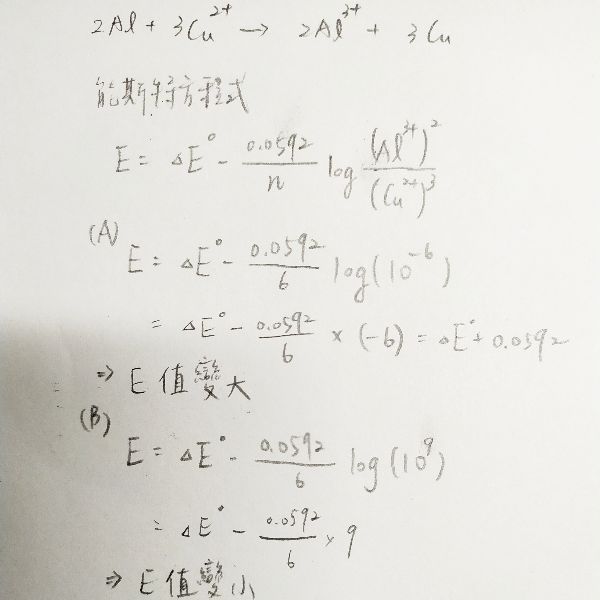 2Al + 3Cu²⁺ → 2Al³⁺ + 3Cu
能斯特方程式
E = ΔE° - 0.0592/n log (Al³⁺)²/(Cu²⁺)³
(A)
E = ΔE° - 0.0592/6 log(10⁻⁶)
= ΔE° - 0.0592/6 × (-6) = ΔE° + 0.0592
⇒ E 值變大
(B)
E = ΔE° - 0.0592/6 log(10⁹)
= ΔE° - 0.0592/6 × 9
⇒ E 值變小